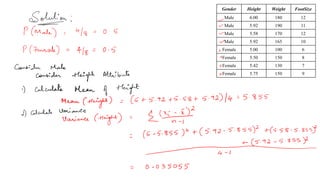 Solution:
P(Male) = 4/8 = 0.5
P(Female) = 4/8 = 0.5
Consider Male
Consider Height Attribute
1) Calculate Mean of Height
Mean (Height) = (6+5.92+5.58+5.92)/4 = 5.855
2) Calculate Variance
Variance (Height) = Σ (xi - x̄)² / n-1
= (6-5.855)² + (5.92-5.855)² + (5.58-5.855)² + (5.92-5.855)² / 4-1
= 0.035055
Gender Height Weight FootSize
Male 6.00 180 12
Male 5.92 190 11
Male 5.58 170 12
Male 5.92 165 10
Female 5.00 100 6
Female 5.50 150 8
Female 5.42 130 7
Female 5.75 150 9